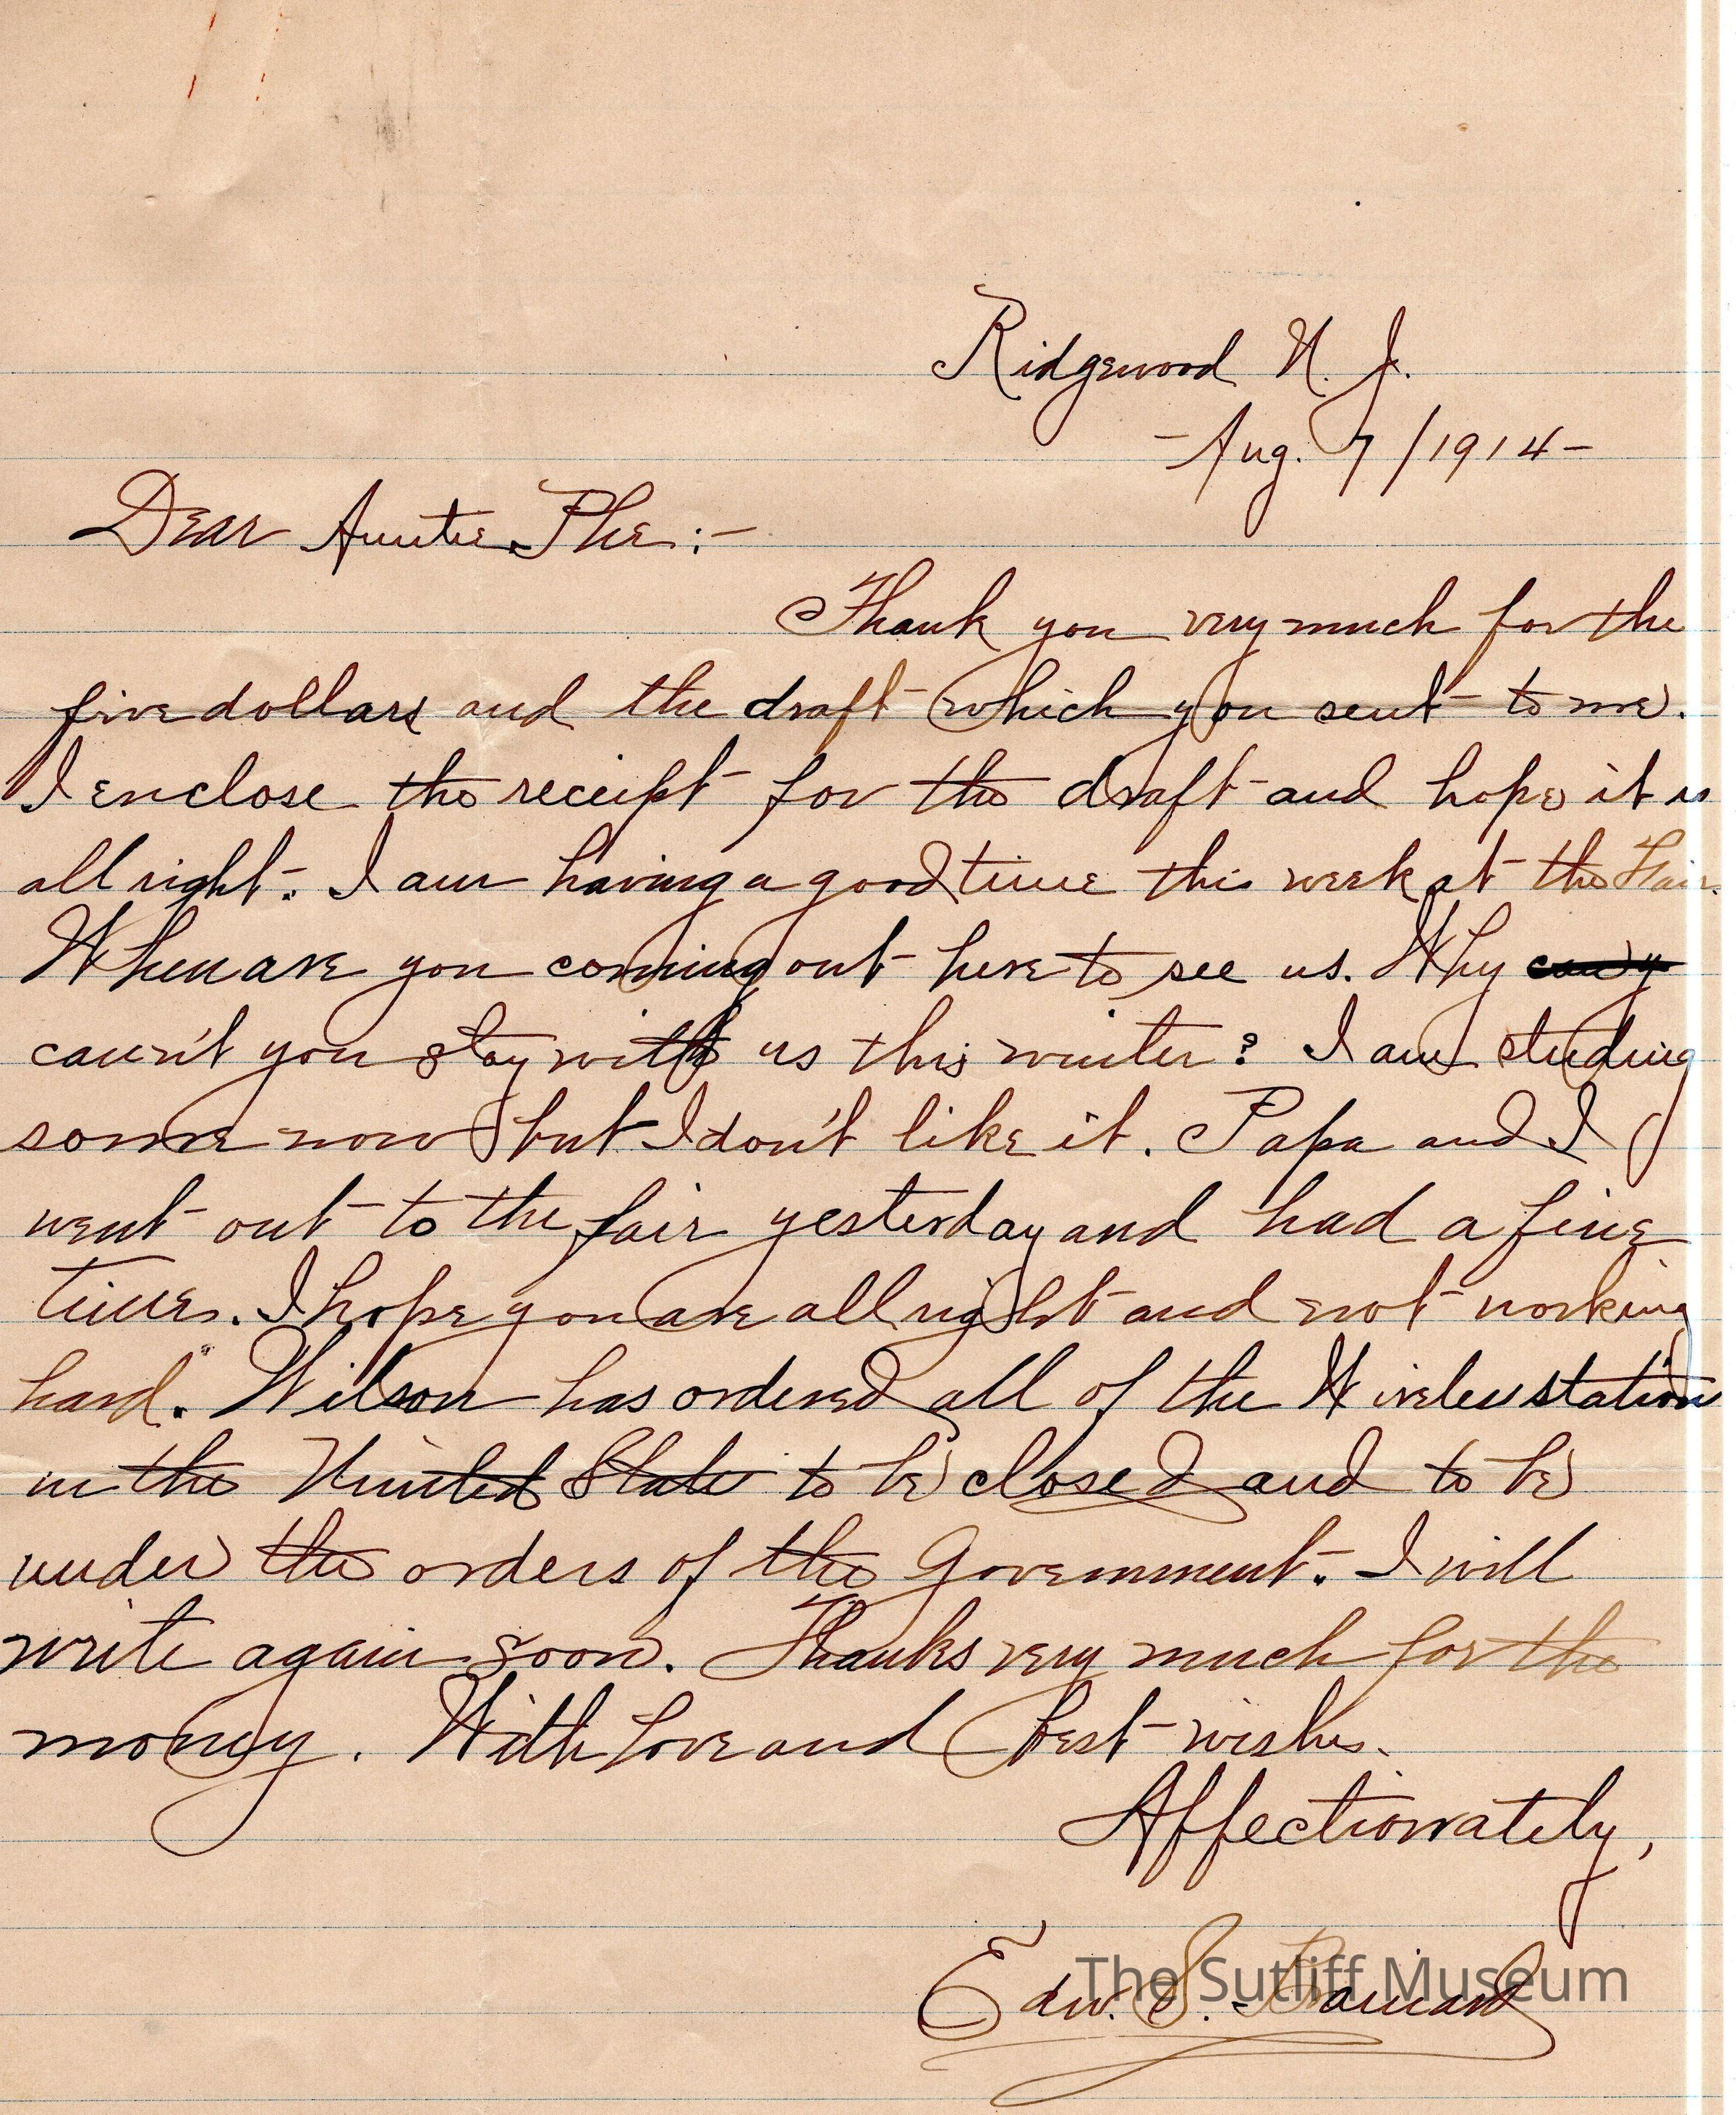 Ridgewood N. J.
- Aug. 7 / 1914 -
Dear Auntie Phe :-
Thank you very much for the
five dollars and the draft which you sent to me.
I enclose the receipt for the draft and hope it is
all right. I am having a good time this week at the Fair.
When are you coming out here to see us. Why
caun't you stay with us this winter? I am studing
some now but I don't like it. Papa and I
went out to the fair yesterday and had a fine
time. I hope you are all right and not working
hard. Wilson has ordered all of the Wireless station
in the United State to be closed and to be
under the orders of the Government. I will
write again soon. Thanks very much for the
money. With love and best wishes.
Affectionately,
Edw. S. Brainard
The Sutliff Museum